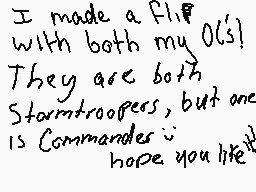 I made a flip
with both my O(s!
They are both
Stormtroopers, but one
is Commander
hope you like it!